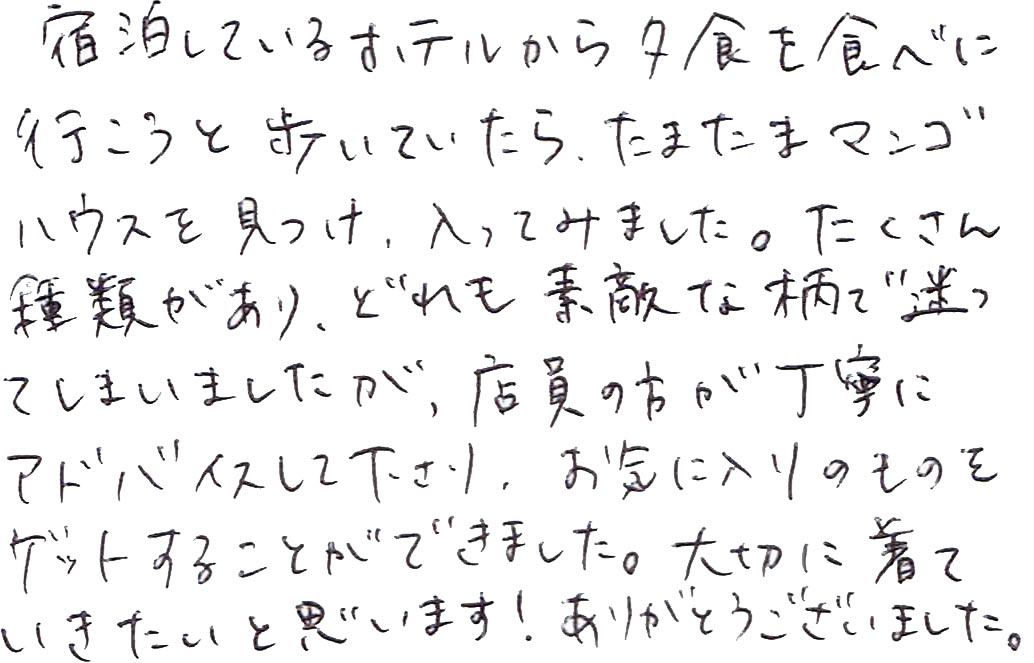 宿泊しているホテルから夕食を食べに
行こうと歩いていたら、たまたまマンゴ
ハウスを見つけ、入ってみました。たくさん
種類があり、どれも素敵な柄で迷っ
てしまいましたが、店員の方が丁寧に
アドバイスして下さり、お気に入りのものを
ゲットすることができました。大切に着て
いきたいと思います！ありがとうございました。